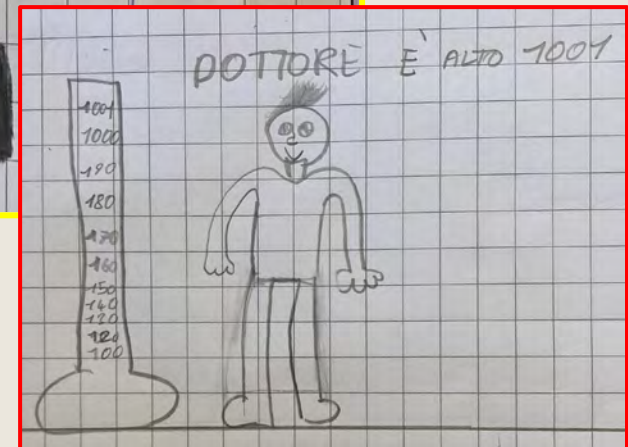 DOTTORE È ALTO 1001
1001
1000
190
180
170
160
150
140
130
120
100